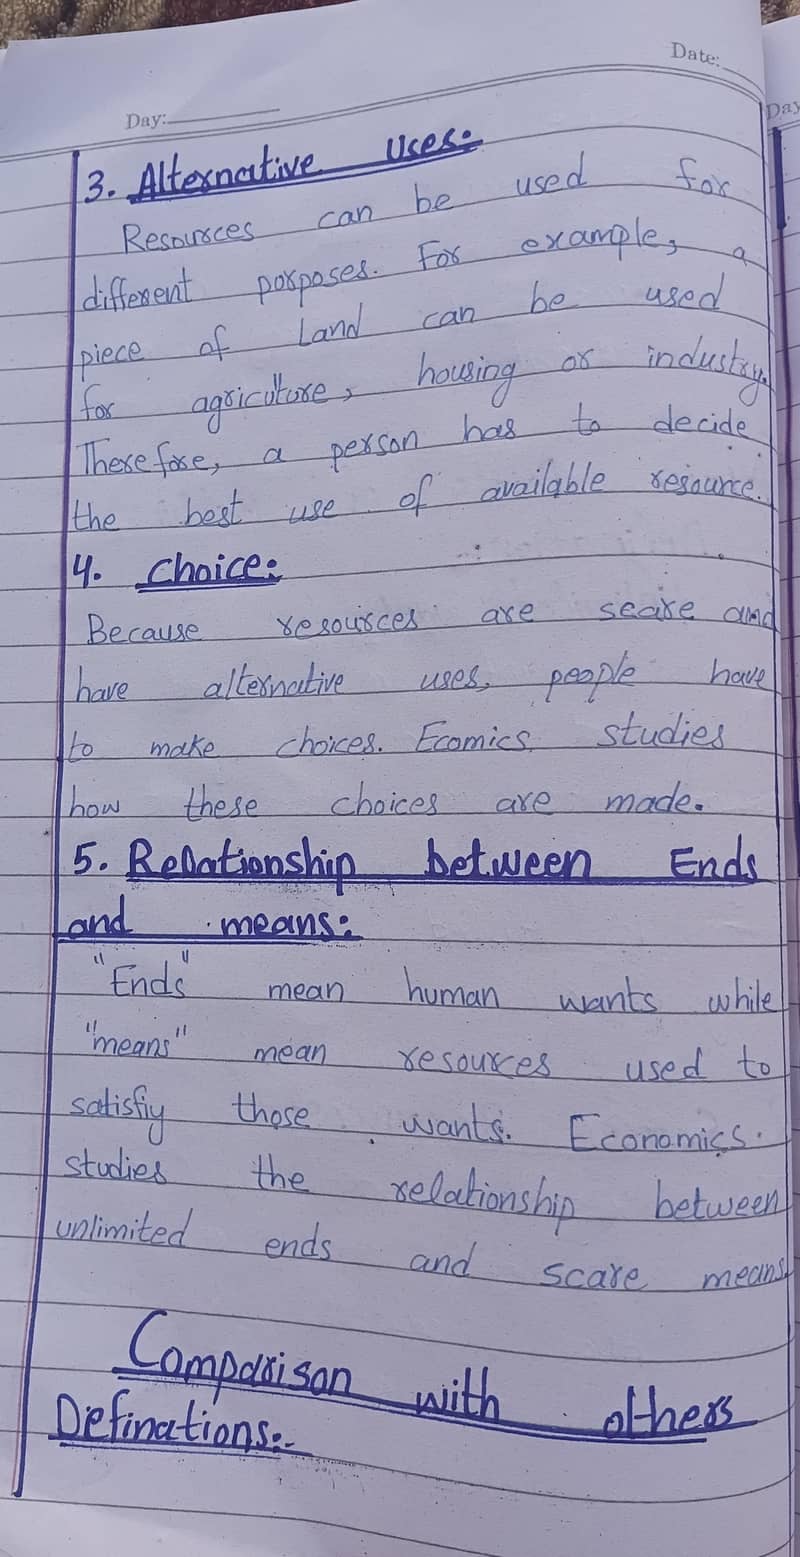 Date:
Day:
Day
3. Alternative Uses:
Resources can be used for
different porposes. For example, a
piece of Land can be used
for agriculture, housing or industry.
Therefore, a person has to decide
the best use of available resource.
4. Choice:
Because resources are scare and
have alternative uses, people have
to make choices. Ecomics studies
how these choices are made.
5. Relationship between Ends
and means:
"Ends" mean human wants while
"means" mean resources used to
satisfiy those wants. Economics.
studies the relationship between
unlimited ends and scare means
Comparison with others
Definations:-